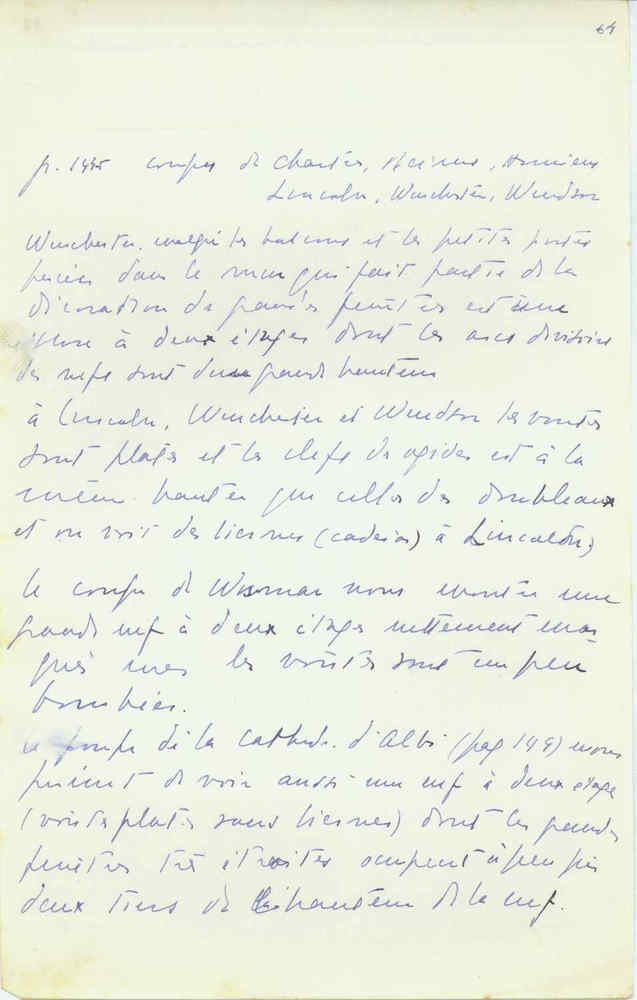 64
p. 1445 coupes de Chartres, Reims, Amiens
Lincoln, Winchester, Windsor
Winchester, malgré les balcons et les petites portes
percées dans le mur qui fait partie de la
décoration des grandes fenêtres est une
à deux étages dont les arcs divisoires
des nefs sont d'une grande hauteur
à Lincoln, Winchester et Windsor les voutes
sont plates et les clefs des ogives est à la
même hauteur que celles des doubleaux
et on voit des liernes (cadeias) à Lincoln,
la coupe de Wismar nous montre une
grande nef à deux étages nettement mar-
qués mes les voûtes sont un peu
bombées.
la coupe de la Cathed. d'Albi (pag 149) nous
permet de voir aussi une nef à deux étages
(voutes plates sans liernes) dont les grandes
fenêtres très étroites occupent à peu près
deux tiers de la hauteur de la nef.